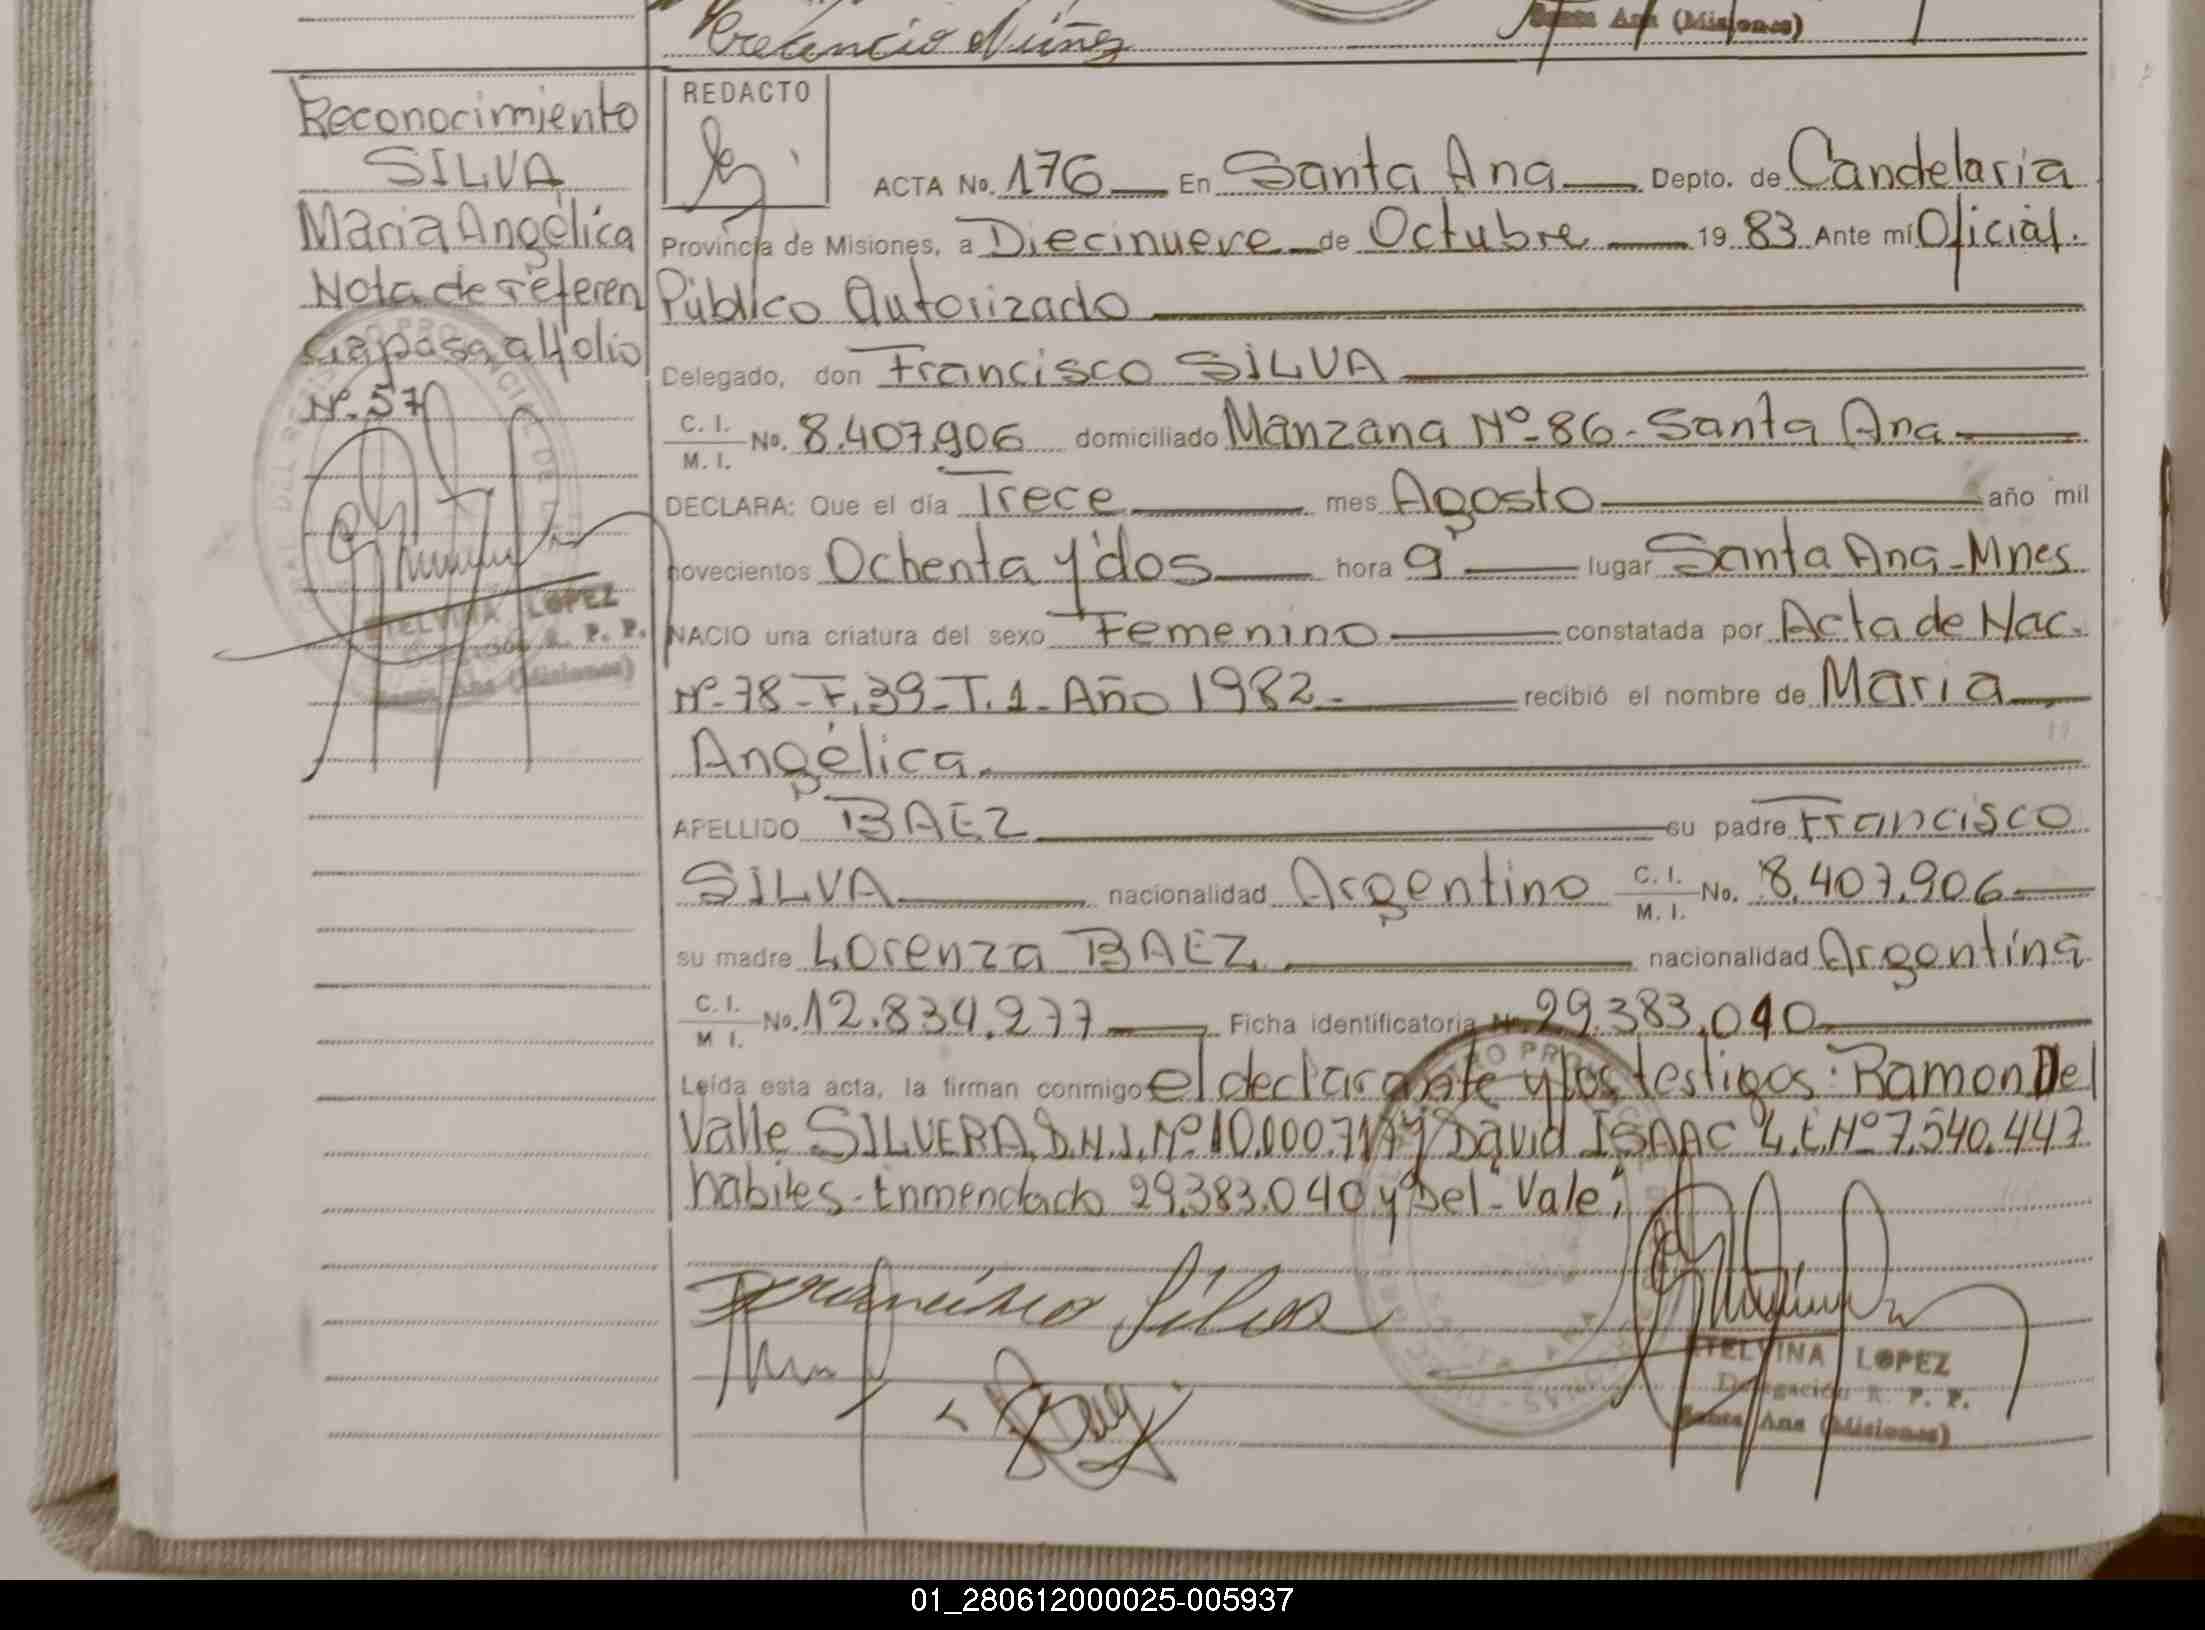 Cretencio Núñez
Santa Ana (Misiones)
Reconocimiento
SILVA
Maria Angélica
Nota de referen
cia pasa a folio
Nº. 57
ETELVINA LOPEZ
Delegación R. P. P.
Santa Ana (Misiones)
REDACTO
ACTA No. 176 En Santa Ana Depto. de Candelaria
Provincia de Misiones, a Diecinueve de Octubre 19 83 Ante mí Oficial.
Público Autorizado
Delegado, don Francisco SILVA
C. I.
M. I. No. 8.407.906 domiciliado Manzana Nº 86 - Santa Ana
DECLARA: Que el día Trece mes Agosto año mil
novecientos Ochenta y dos hora 9 lugar Santa Ana - Mnes
NACIO una criatura del sexo Femenino constatada por Acta de Nac.
Nº 78 - F. 39 - T. 1 - Año 1982 - recibió el nombre de Maria
Angélica.
APELLIDO BAEZ su padre Francisco
SILVA nacionalidad Argentino C. I. M. I. No. 8.407.906
su madre Lorenza BAEZ. nacionalidad Argentina
C. I.
M I. No. 12.834.277 Ficha identificatoria Nº 29.383.040
Leída esta acta, la firman conmigo el declarante y los testigos: Ramon Del
Valle SILVERA, D.N.I. Nº 10.000.717 y David ISAAC L.E. Nº 7.540.447
habiles - Enmendado 29.383.040 y "Del" - Vale;
Francisco Silva
ETELVINA LOPEZ
Delegación R. P. P.
Santa Ana (Misiones)
01_280612000025-005937